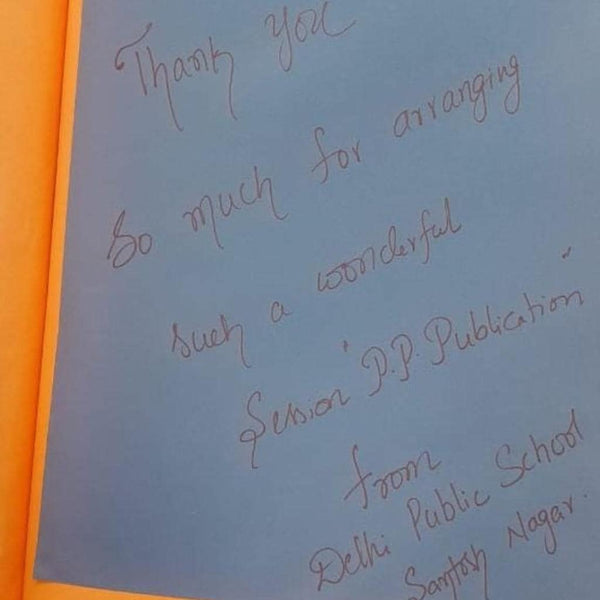 Thank you
So much for arranging
such a wonderful
Session "P.P. Publication"
from
Delhi Public School
Santosh Nagar.